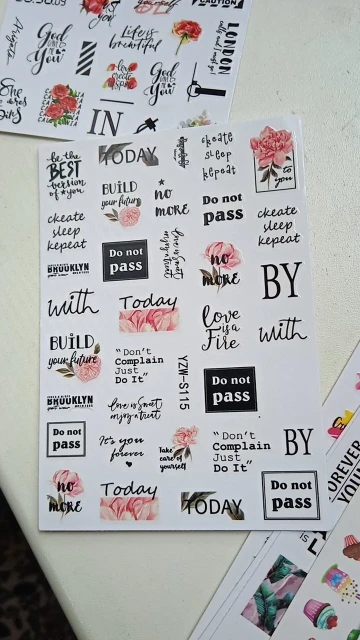 CAUTION
God
Gave
Me
You
Life is
beautiful
LONDON
love
God
Gave
Me
You
She
IN
be the
BEST
version
of you
TODAY
ckeate
sleep
kepeat
to
you
BUILD
your future
no
MORE
Do not
pass
ckeate
sleep
kepeat
ckeate
sleep
kepeat
BROOKLYN
Do not
pass
love is sweet
enjoy a treat
no
MORE
BY
with
Today
love
is a
Fire
with
BUILD
your future
"Don't
Complain
Just
Do It"
YZW-S115
Do not
pass
BROOKLYN
love is sweet
enjoy a treat
Do not
pass
It's you
forever
Take care of
yourself
"Don't
Complain
Just
Do It"
BY
no
MORE
Today
TODAY
Do not
pass
FOREVER
YOUR